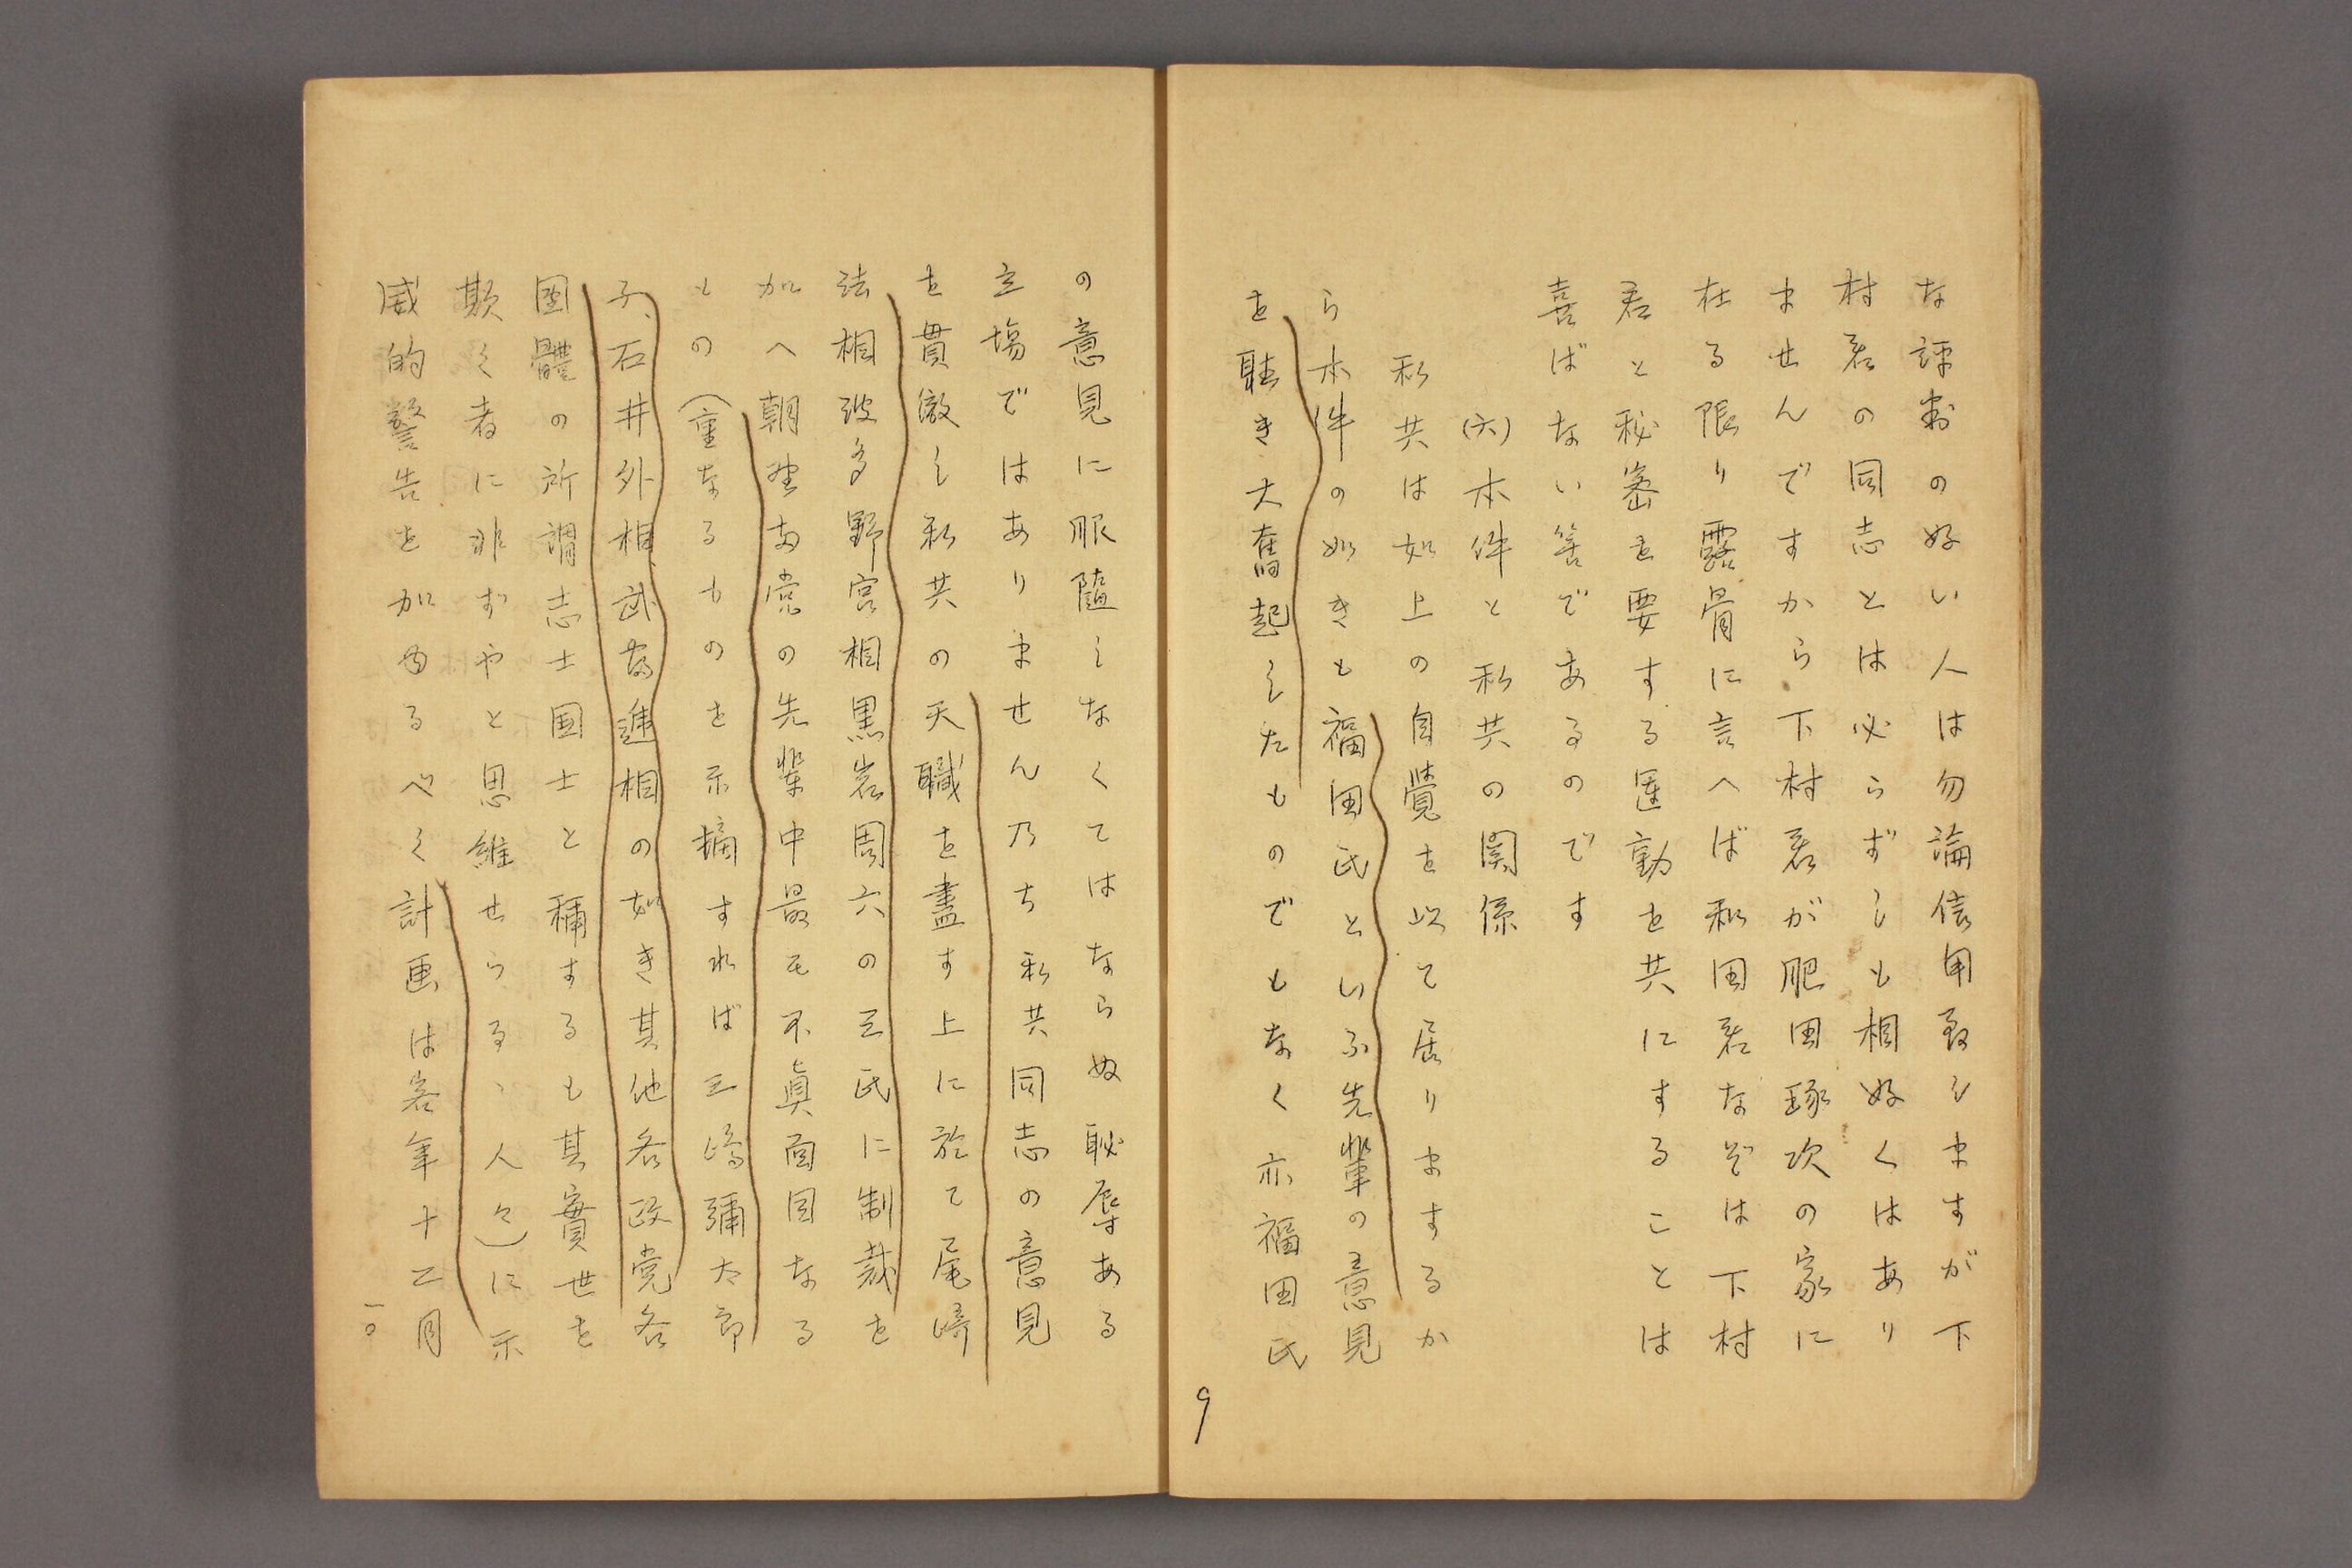 な評判の好い人は勿論信用致しますが下
村君の同志とは必らずしも相好くはあり
ませんですから下村君が肥田琢次の家に
在る限り露骨に言へば和田君なぞは下村
君と秘密を要する運動を共にすることは
喜ばない筈であるのです
(六)本件と私共の関係
私共は如上の自覺を以て居りますか
ら本件の如きも福田氏といふ先輩の意見
を聴き大奮起したものでもなく亦福田氏
9
の意見に服隨しなくてはならぬ恥辱ある
立場ではありません乃ち私共同志の意見
を貫徹し私共の天職を盡す上に於て尾崎
法相波多野宮相黒岩周六の三氏に制裁を
加へ朝野両党の先輩中最も不眞面目なる
もの(重なるものを示摘すれば三嶋彌太郎
子、石井外相、武富逓相の如き其他各政党各
團體の所謂志士国士と稱するも其實世を
欺く者に非ずやと思維せらるゝ人々)に示
威的警告を加ゆるべく計画は客年十二月
一〇